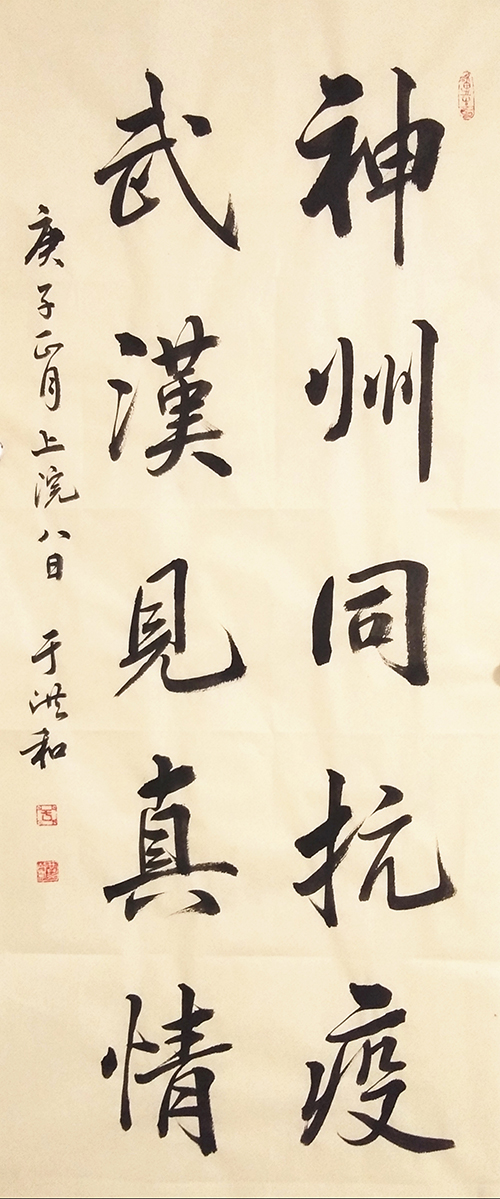 神州同抗疫
武漢見真情
庚子正月上浣八日 于洪和